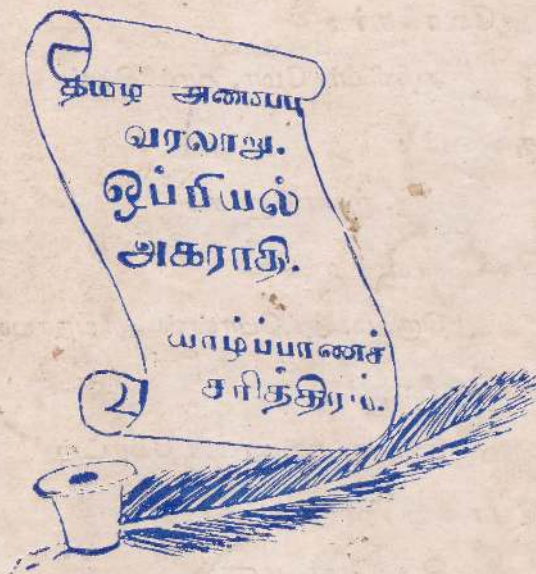 தமிழ் அமைப்பு
வரலாறு.
ஒப்பியல்
அகராதி.
யாழ்ப்பாணச்
சரித்திரம்.